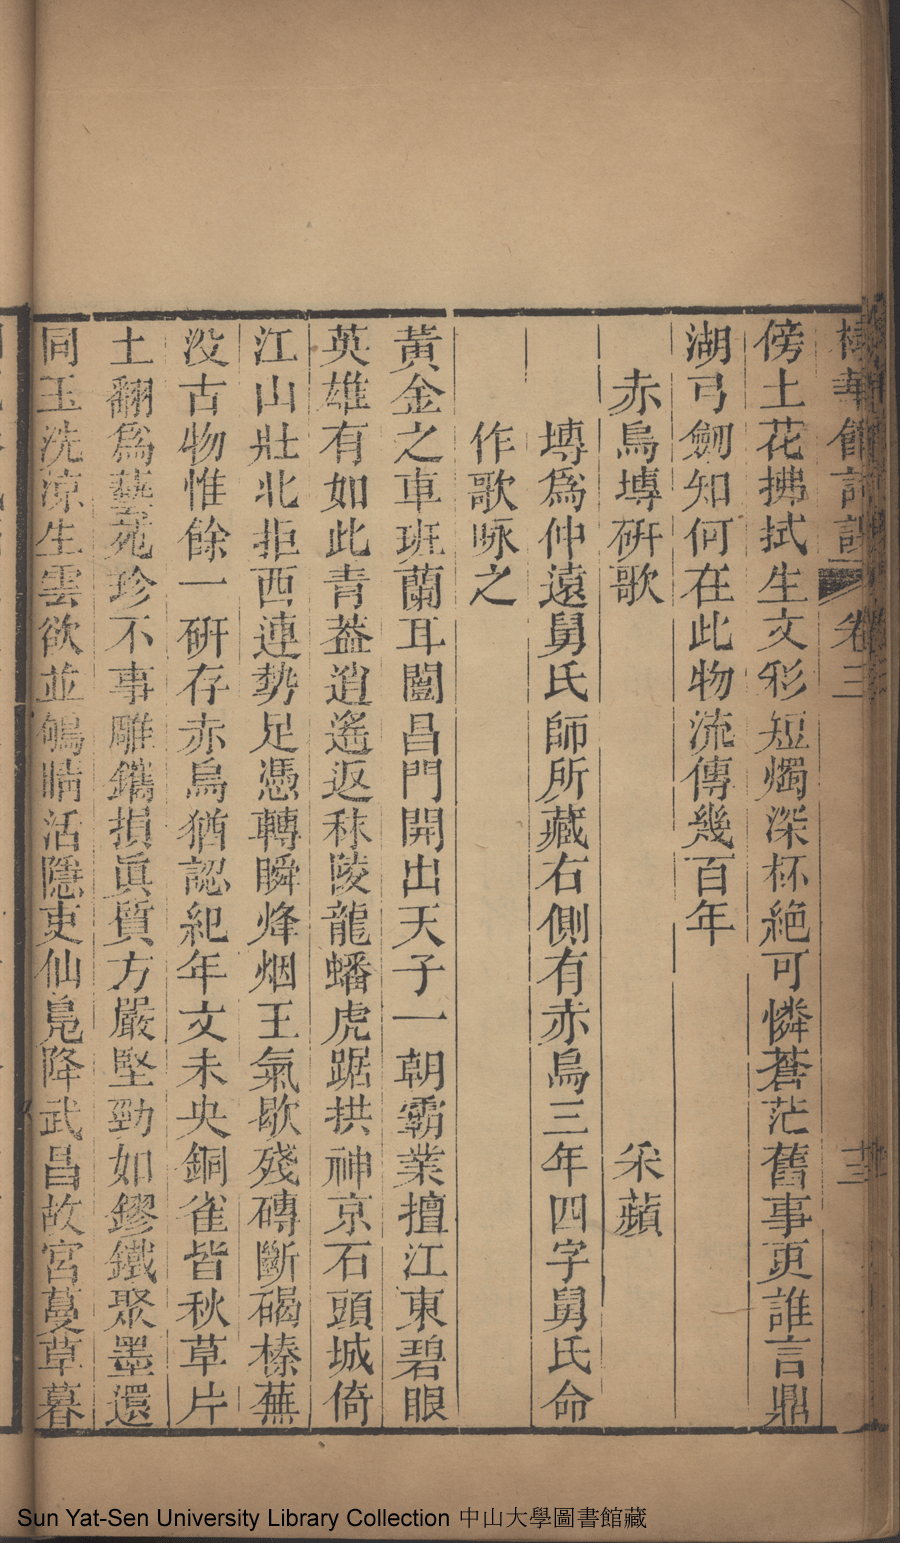 華館詩課 卷三
傍土花拂拭生文彩短燭深杯絶可憐蒼茫舊事更誰言鼎
湖弓劒知何在此物流傳幾百年
赤烏塼硏歌 采蘋
塼爲仲遠舅氏師所藏右側有赤烏三年四字舅氏命
作歌咏之
黃金之車班蘭耳闓昌門開出天子一朝霸業擅江東碧眼
英雄有如此青葢逍遙返秣陵龍蟠虎踞拱神京石頭城倚
江山壯北拒西連勢足憑轉瞬烽烟王氣歇殘磚斷碣榛蕪
没古物惟餘一硏存赤烏猶認紀年文未央銅雀皆秋草片
土翻爲藝苑珍不事雕鐫損眞質方嚴堅勁如鏐鐵聚墨還
同玉洗凉生雲欲並鴝睛活隱吏仙鳬降武昌故宮蔓草暮
Sun Yat-Sen University Library Collection 中山大學圖書館藏